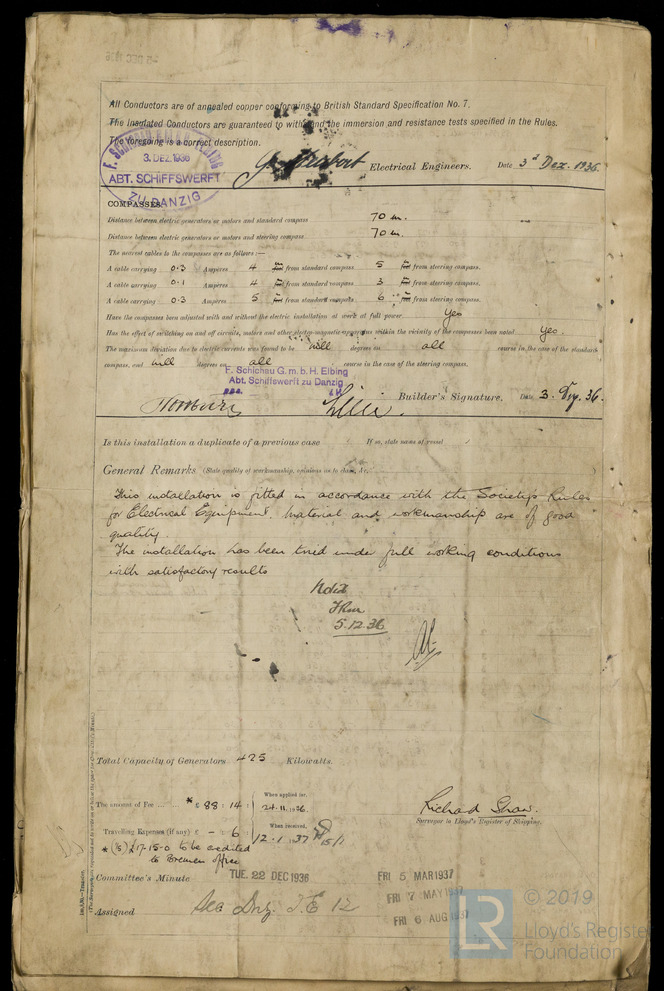 All Conductors are of annealed copper conforming to British Standard Specification No. 7.
The Insulated Conductors are guaranteed to withstand the immersion and resistance tests specified in the Rules.
The foregoing is a correct description.
3. DEZ. 1936
ABT. SCHIFFSWERFT
ZU DANZIG
Electrical Engineers. Date 3d Dez. 1936.
COMPASSES.
Distance between electric generators or motors and standard compass 70 m.
Distance between electric generators or motors and steering compass 70 m.
The nearest cables to the compasses are as follows:—
A cable carrying 0.3 Ampères 4 from standard compass 5 from steering compass.
A cable carrying 0.1 Ampères 4 from standard compass 3 from steering compass.
A cable carrying 0.3 Ampères 5 from standard compass 6 from steering compass.
Have the compasses been adjusted with and without the electric installation at work at full power Yes
Has the effect of switching on and off circuits, motors and other electro-magnetic apparatus within the vicinity of the compasses been noted Yes.
The maximum deviation due to electric currents was found to be nill degrees on all course in the case of the standard
compass, and nill degrees on all course in the case of the steering compass.
F. Schichau G. m. b. H. Elbing
Abt. Schiffswerft zu Danzig
Builder's Signature. Date 3. 36.
Is this installation a duplicate of a previous case If so, state name of vessel
General Remarks (State quality of workmanship, opinions as to class, &c.)
This installation is fitted in accordance with the Society's Rules
for Electrical Equipment. Material and workmanship are of good
quality.
The installation has been tried under full working conditions
with satisfactory results
Noted
5.12.36
Total Capacity of Generators 425 Kilowatts.
The amount of Fee * £ 88 : 14 : When applied for, 24.11.1936.
Travelling Expenses (if any) £ - : 6 : When received, 12.1.37 15/1
* £17-15-0 to be credited
to Bremen office
Richard Shaw.
Surveyor to Lloyd's Register of Shipping.
Committee's Minute TUE. 22 DEC 1936 FRI 5 MAR 1937
FRI 7 MAY 1937
Assigned FRI 6 AUG 1937
© 2019
LR
Lloyd's Register
Foundation